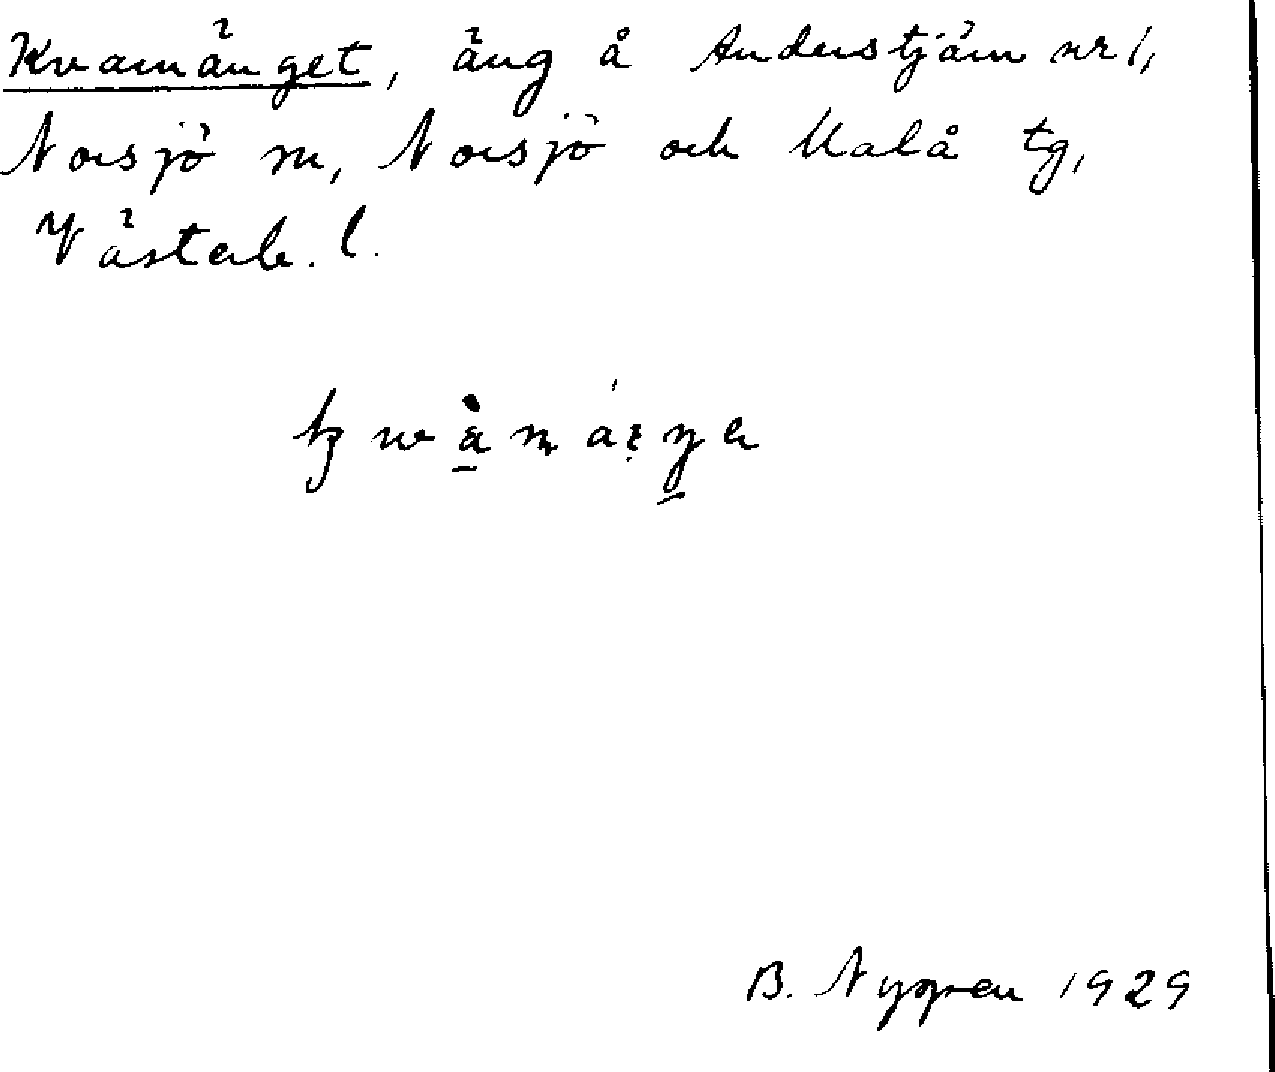 Kvamänget, äng å Anderstjärn nr 1,
Norsjö sn, Norsjö och Malå tg,
Västerb. l.
B. Nygren 1929